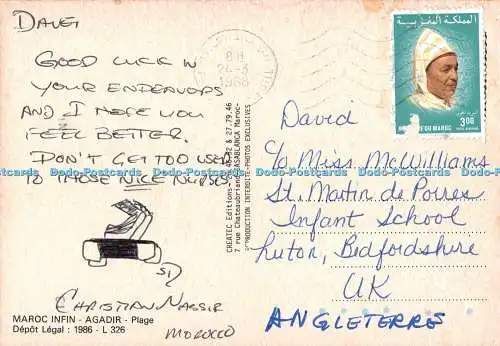 DAVE,
GOOD LUCK IN
YOUR ENDEAVORS
AND I HOPE YOU
FEEL BETTER.
DON'T GET TOO USED
TO THOSE NICE NURSES
CHRISTIAN NASSIR
MOROCCO
MAROC INFIN - AGADIR - Plage
Dépôt Légal : 1986 - L 326
CREATEC Editions
7 rue Chateaubriand CASABLANCA Maroc
REPRODUCTION INTERDITE-PHOTOS EXCLUSIVES
24-3
1988
المملكة المغربية
3,00
ROYAUME DU MAROC
David
c/o Miss McWilliams
St. Martin de Porres
Infant School
Luton, Bedfordshire
UK
ANGLETERRE
Dodo-Postcards Dodo-Postcards Dodo-Postcards Dodo-Postcards